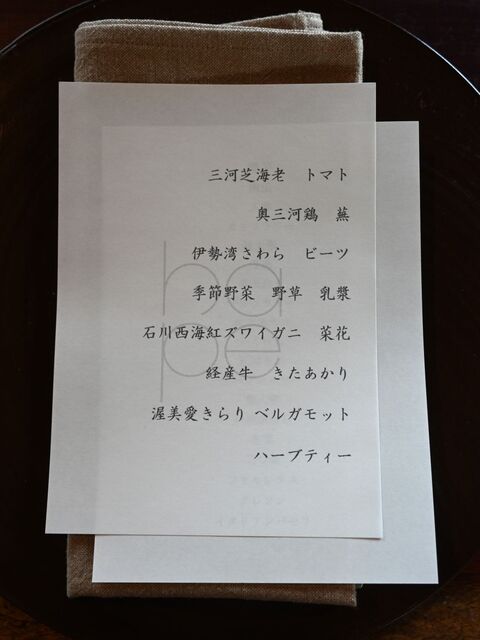 三河芝海老　トマト
奥三河鶏　蕪
伊勢湾さわら　ビーツ
季節野菜　野草　乳漿
石川西海紅ズワイガニ　菜花
経産牛　きたあかり
渥美愛きらり ベルガモット
ハーブティー
pa
pe